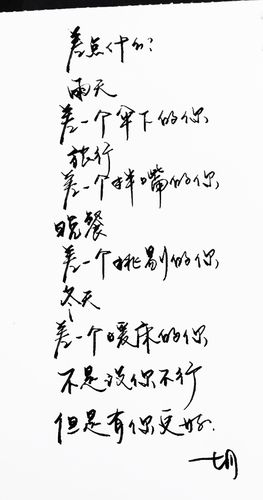 差点什么？
雨天
差一个伞下的你
旅行
差一个拌嘴的你
晚餐
差一个挑剔的你
冬天
差一个暖床的你
不是没你不行
但是有你更好.